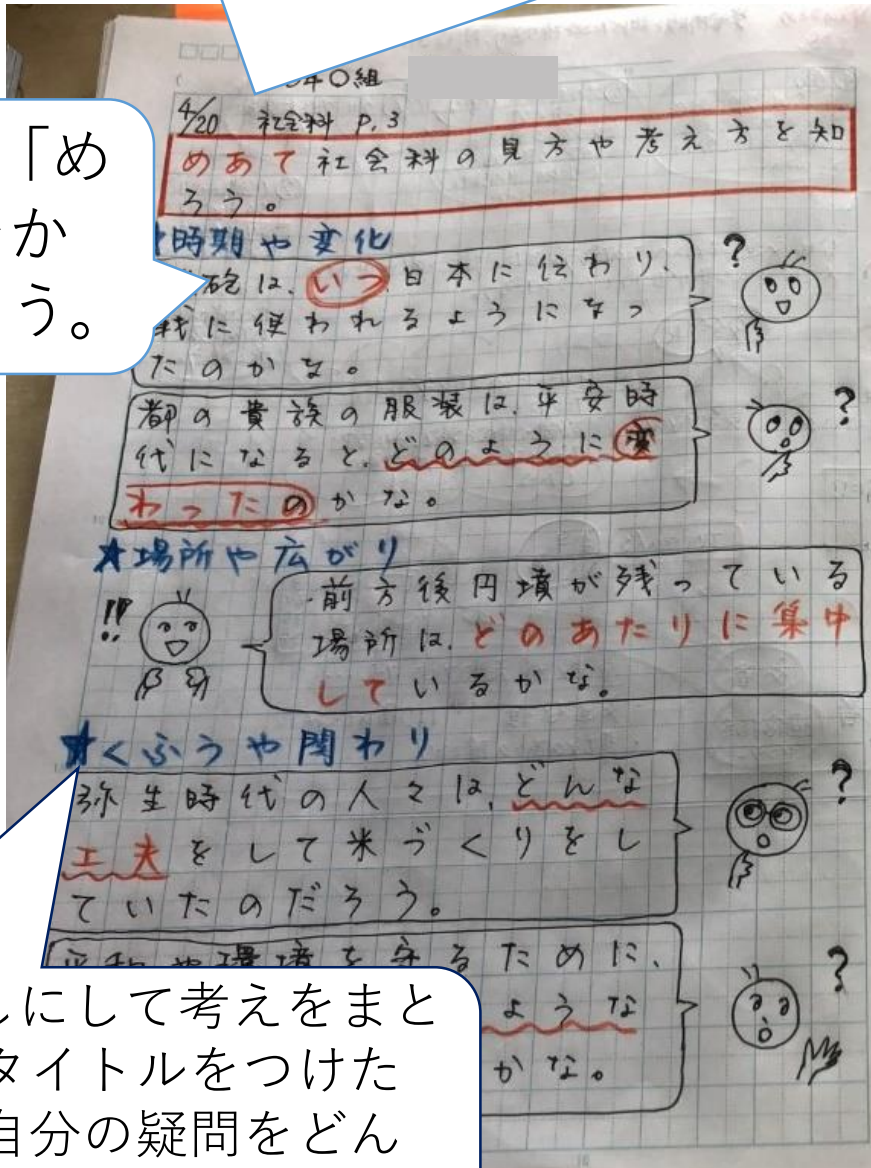 年〇組
4/20 社会科 P.3
めあて 社会科の見方や考え方を知
ろう。
「め
か
う。
時期や変化
砲は、いつ日本に伝わり、
に使われるようになっ
たのかな。
都の貴族の服装は、平安時
代になると、どのように変
わったのかな。
★場所や広がり
前方後円墳が残っている
場所は、どのあたりに集中
しているかな。
★くふうや関わり
弥生時代の人々は、どんな
工夫をして米づくりをし
ていたのだろう。
平和や環境を守るために、
ような
かな。
しにして考えをまと
タイトルをつけた
自分の疑問をどん